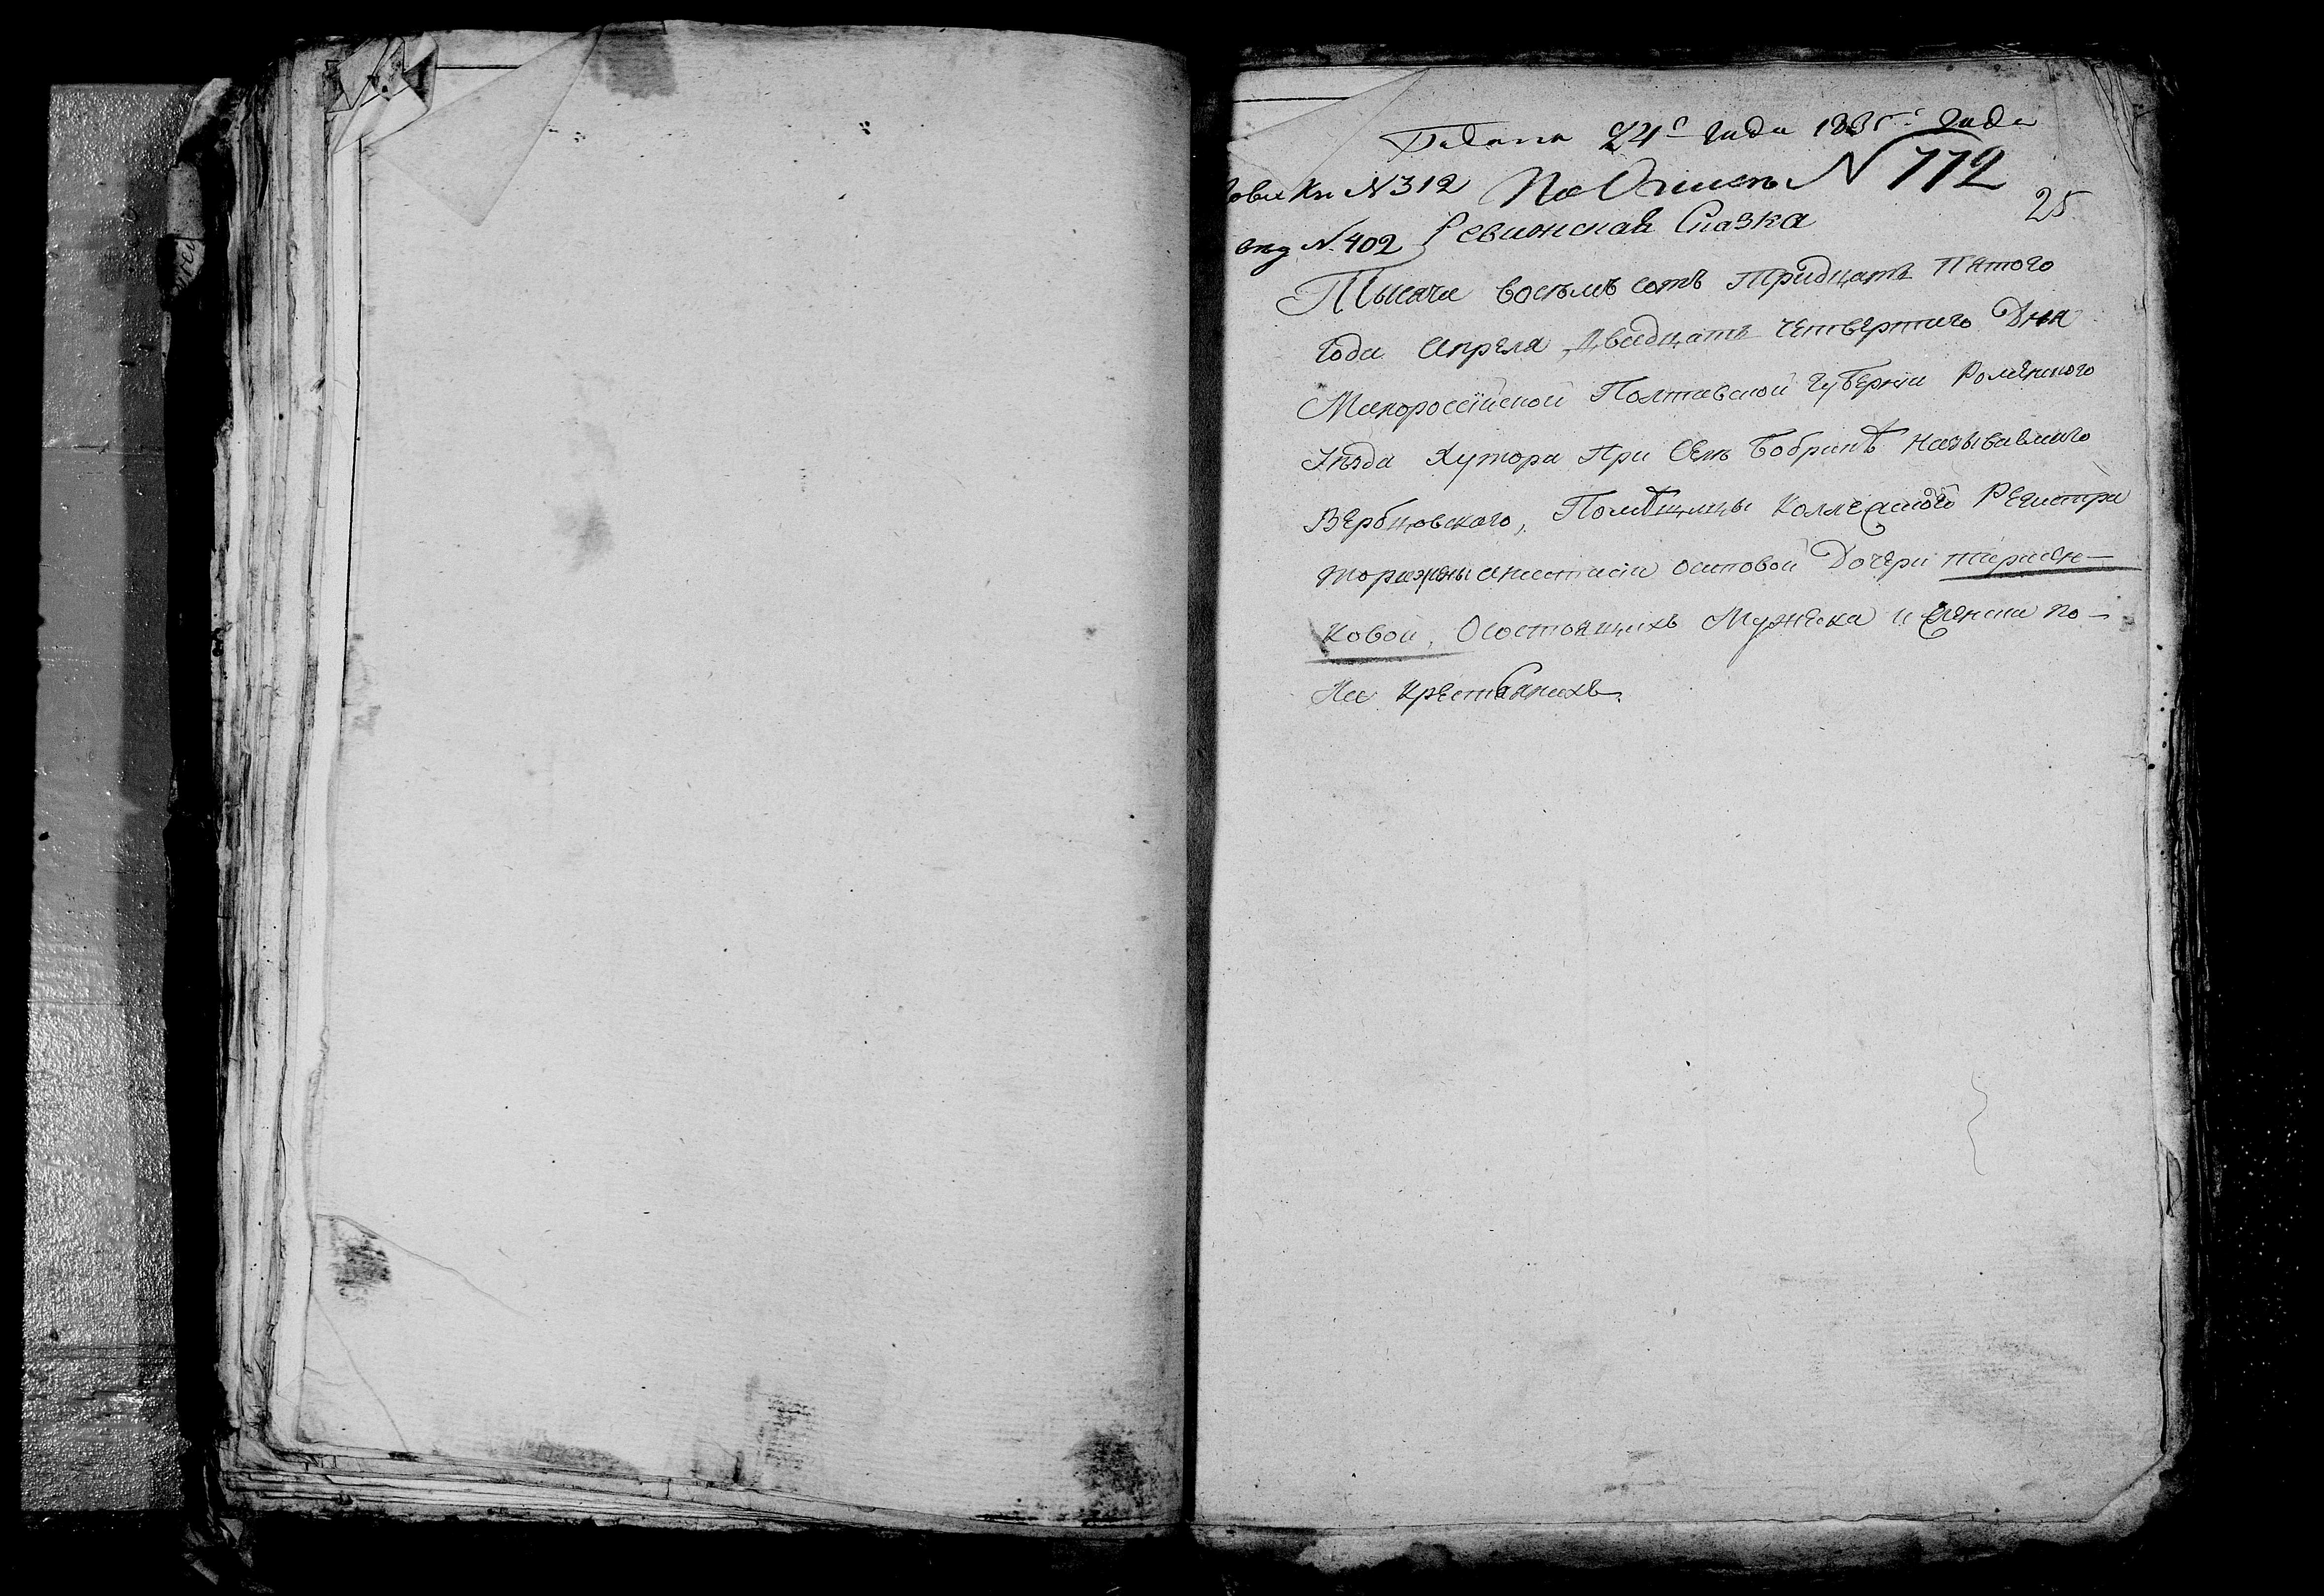 Подана 24го 1835го года
Кн N 312 По Описи N 112
N. 402 Ревижская Сказка 25
Тысяча восемь сотъ тридцать Пятого
Года Апреля Двадцать Четвертого Дня
Малороссійской Полтавской Губерніи Роменского
Уезда Хутора При Селе Бобрикѣ Називаемаго
Вербцовского, Помѣщицы Коллежского Регистра
торши Анастасіи Осиповой Дочери Тарасен–
ковой, О состоящихъ Мужеска и Женска по–
ла Крестьянахъ.